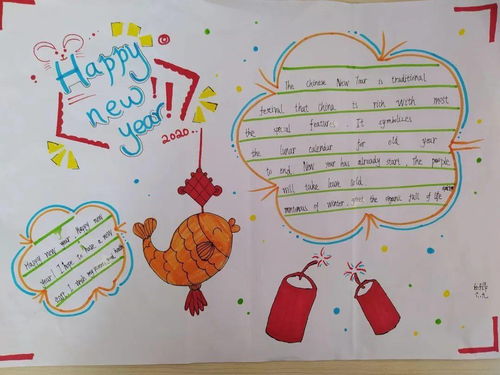 Happy
new
year!!
2020..
The Chinese New Year is traditional
festival that China is rich with most
the special features. It symbolizes
the lunar calendar for old year
to end, New year has already start. The people
will take leave cold
winter, greet the organic full of life
Happy new year, Happy new
year! I hope to have a new